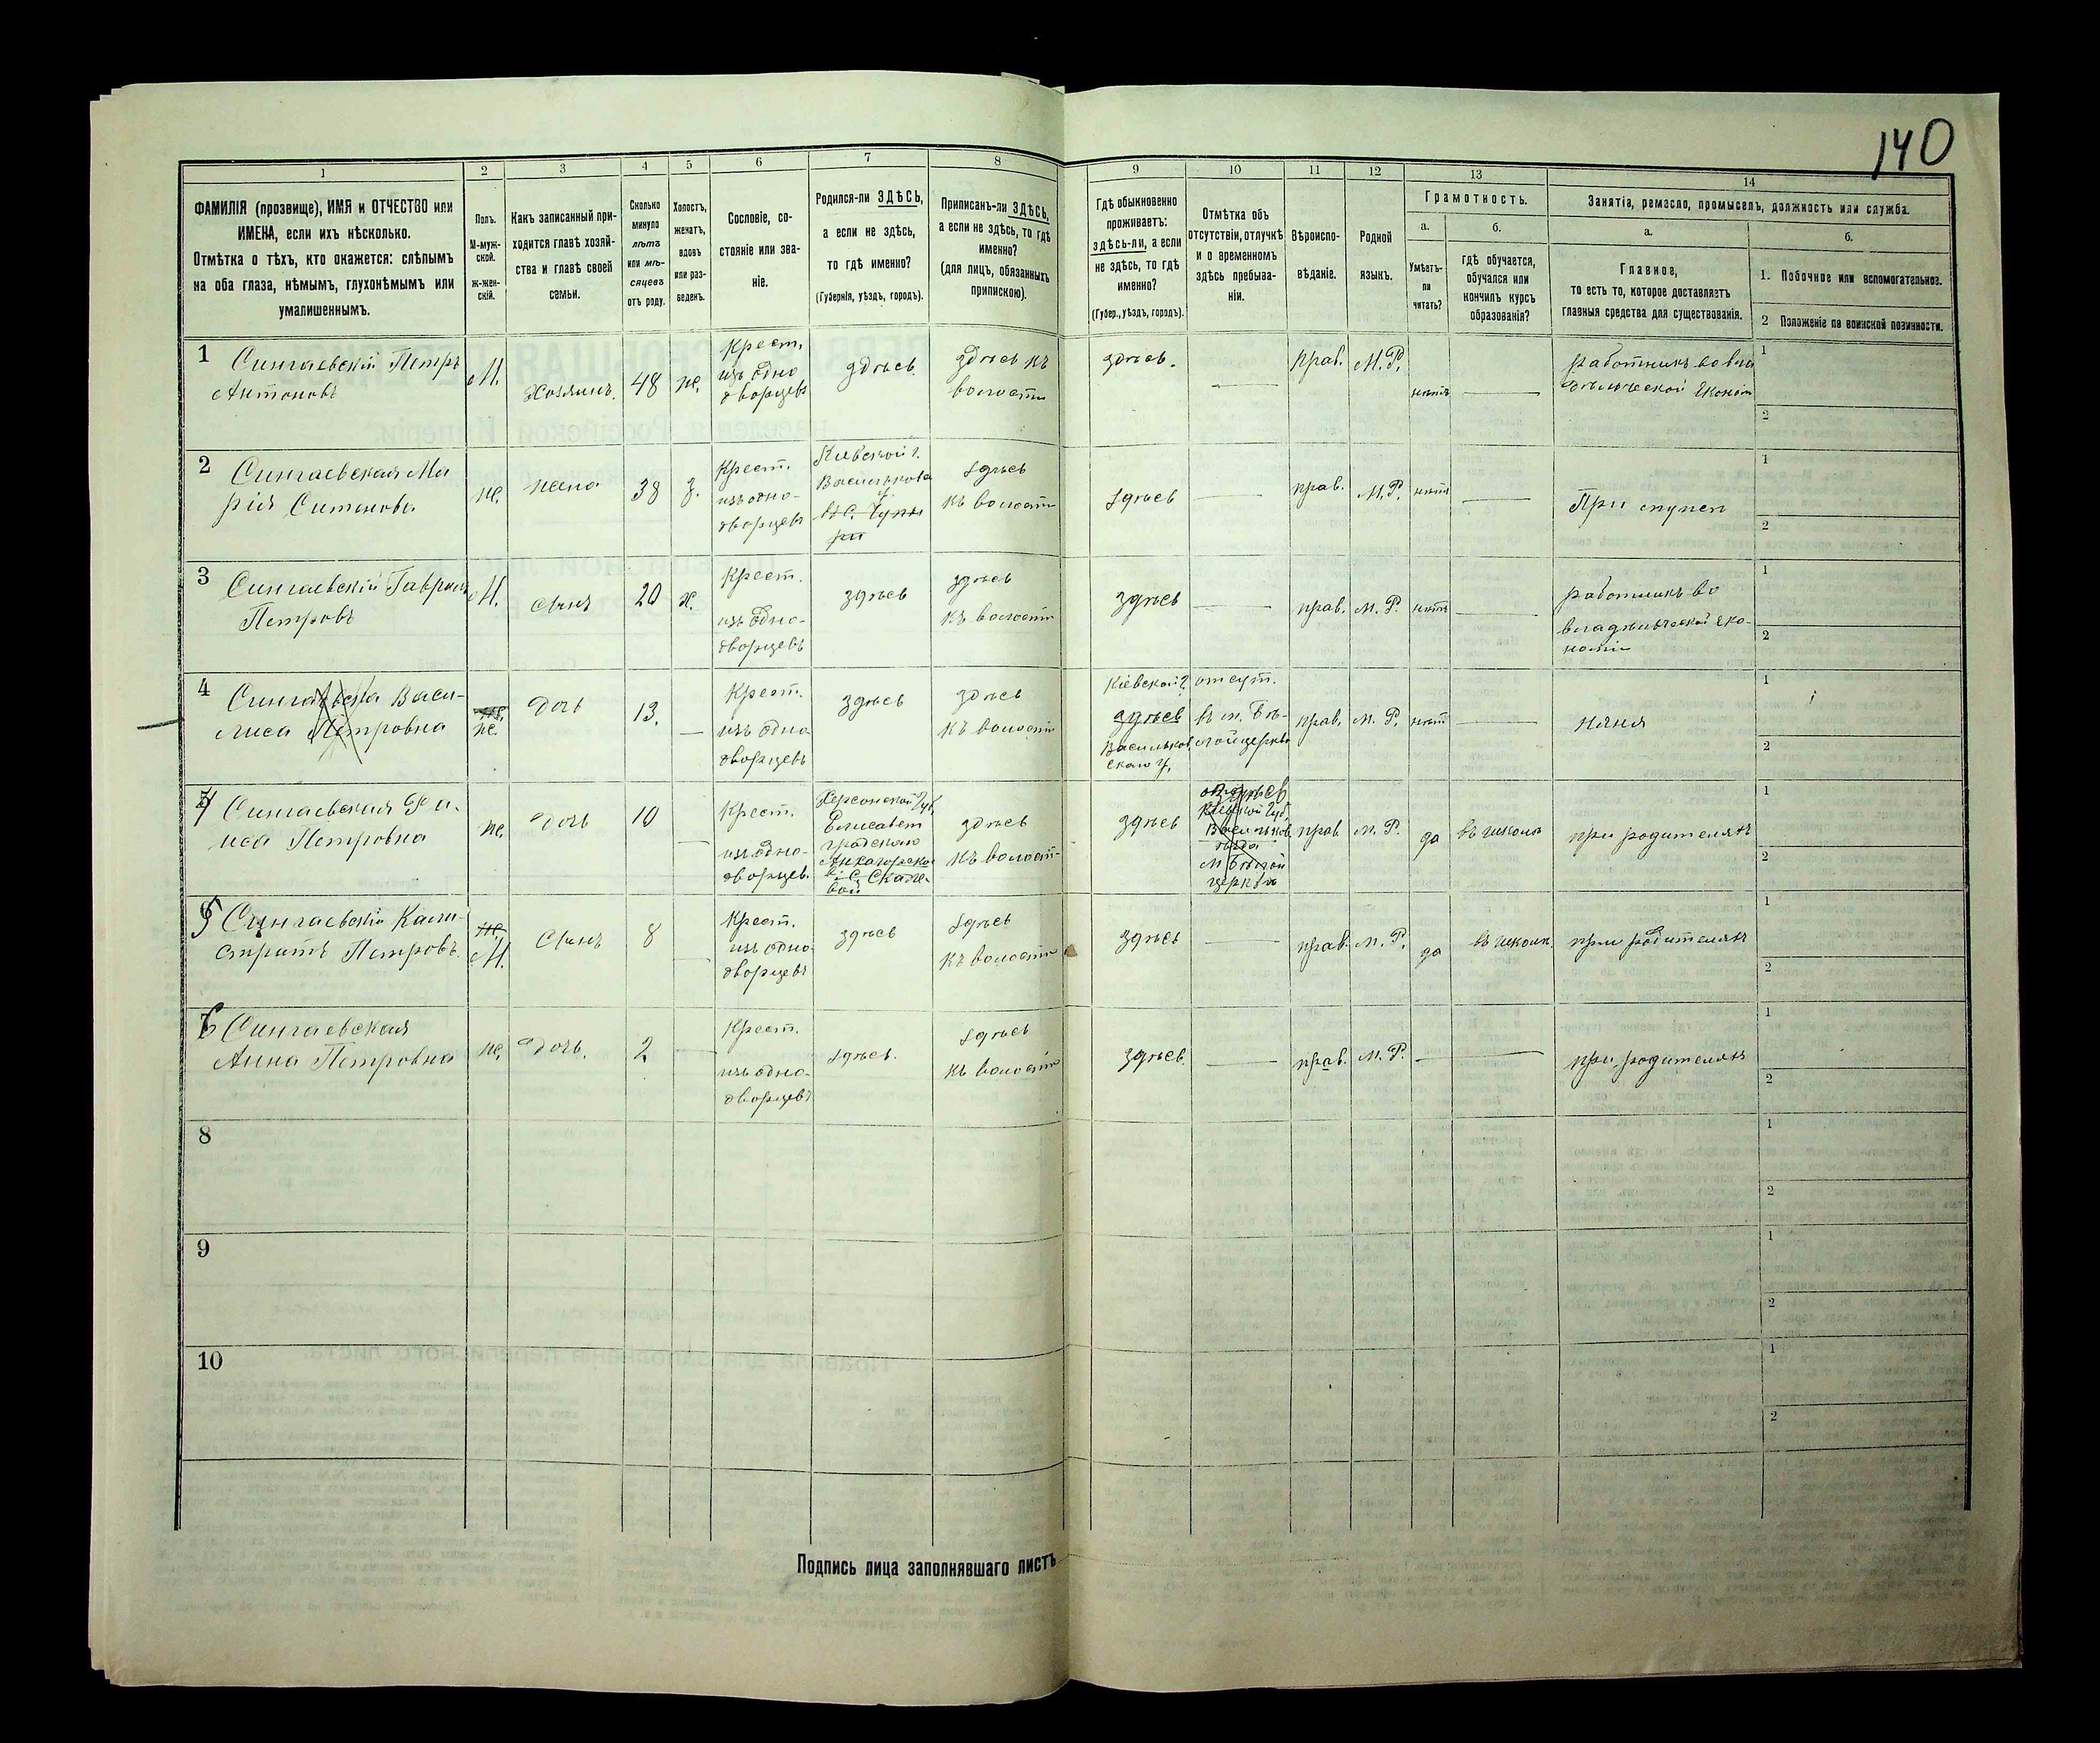 140
1
2
3
4
5
6
7
8
9
10
11
12
13
14
ФАМИЛІЯ (прозвище), ИМЯ и ОТЧЕСТВО или
ИМЕНА, если ихъ нѣсколько.
Отмѣтка о тѣхъ, кто окажется: слѣпымъ
на оба глаза, нѣмымъ, глухонѣмымъ или
умалишеннымъ.
Полъ.
М-муж-
ской.
Ж-жен-
скій.
Какъ записанный при-
ходится главѣ хозяй-
ства и главѣ своей
семьи.
Сколько
минуло
лѣтъ
или мѣ-
сяцевъ
отъ роду.
Холостъ,
женатъ,
вдовъ
или раз-
веденъ.
Сословіе, со-
стояніе или зва-
ніе.
Родился-ли ЗДѢСЬ,
а если не здѣсь,
то гдѣ именно?
(Губернія, уѣздъ, городъ).
Приписанъ-ли ЗДѢСЬ,
а если не здѣсь, то гдѣ
именно?
(для лицъ, обязанныхъ
припискою).
Гдѣ обыкновенно
проживаетъ:
здѣсь-ли, а если
не здѣсь, то гдѣ
именно?
(Губер., уѣздъ, городъ).
Отмѣтка объ
отсутствіи, отлучкѣ
и о временномъ
здѣсь пребыва-
ніи.
Вѣроиспо-
вѣданіе.
Родной
языкъ.
Грамотность.
а.
Умѣетъ-
ли
читать?
б.
гдѣ обучается,
обучался или
кончилъ курсъ
образованія?
Занятіе, ремесло, промыселъ, должность или служба.
а.
Главное,
то есть то, которое доставляетъ
главныя средства для существованія.
б.
1. Побочное или вспомогательное.
2 Положеніе по воинской повинности.
1
Сингаевскій Петръ
Антоновъ
М.
Хозяинъ.
48
же.
Крест.
изъ одно
дворцевъ
здѣсь
здѣсь къ
волости
здѣсь.
Прав.
М.Р.
нѣтъ
работникъ во вла
дѣльческой Економ
1
2
2
Сингаевская Ма
рія
ж.
жена
38
з.
Крест.
изъ одно-
дворцевъ
Киевской г.
Васильков
у.
здѣсь
къ волости
здѣсь
прав.
М.Р.
нѣтъ
При
1
2
3
Сингаевскій Гаврилъ
Петровъ
М.
Сынъ
20
х.
Крест.
изъ одно-
дворцевъ
здѣсь
здѣсь
къ волости
здѣсь
прав.
М. Р.
нѣтъ
работникъ во
владѣльческой Эко-
номіи
1
2
4
Сингаевска Васи-
лиса Петровна
ж.
Дочь
13.
Крест.
изъ одно
дворцевъ
здѣсь
здѣсь
къ волости
Кіевской г.
здѣсь
Васильков
скаго у.
отсут.
въ м. Бѣ-
лой церкви
прав.
М. Р.
нѣтъ
няня
1
2
4
Сингаевская
Петровна
ж.
Дочь
10
Крест.
изъ одно-
дворцев.
Херсонской Губ.
Елисавет
градскаго
здѣсь
къ волости
здѣсь
Васильков
м Бѣлой
церкви
прав
М. Р.
да
въ школѣ
при родителяхъ
1
2
5
Сингаевскій Кали-
стратъ Петровъ
ж.
М.
Сынъ
8
Крест.
изъ одно-
дворцевъ
здѣсь
здѣсь
къ волости
здѣсь
прав.
М. Р.
да
въ школѣ.
при родителяхъ
1
2
6
Сингаевская
Анна Петровна
ж.
Дочь.
2
Крест.
изъ одно-
дворцевъ
здѣсь.
здѣсь
къ волости
здѣсь.
прав.
М. Р.
при родителяхъ
1
2
8
1
2
9
1
2
10
1
2
Подпись лица заполнявшаго листъ